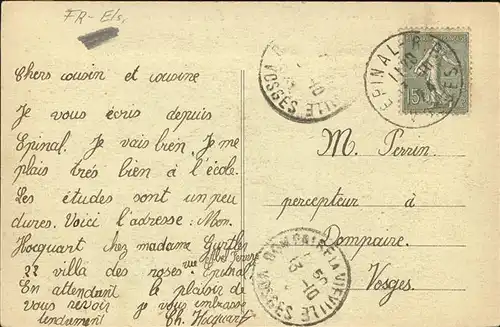 FR-Els,
Chers cousin et cousine
Je vous écris depuis
Epinal. Je vais bien. Je me
plais très bien à l'école.
Les études sont un peu
dures. Voici l'adresse: Mon.
Hocquart chez madame
rue
22 villa des roses. Epinal.
En attendant le plaisir de
vous revoir je vous embrasse
tendrement Ch. Hocquart
EPINAL-R.P.
VOSGES
15
M. Perrin
percepteur à
Dompaire.
Vosges.
DOMPAIRE-LAVIEVILLE
VOSGES
13-10